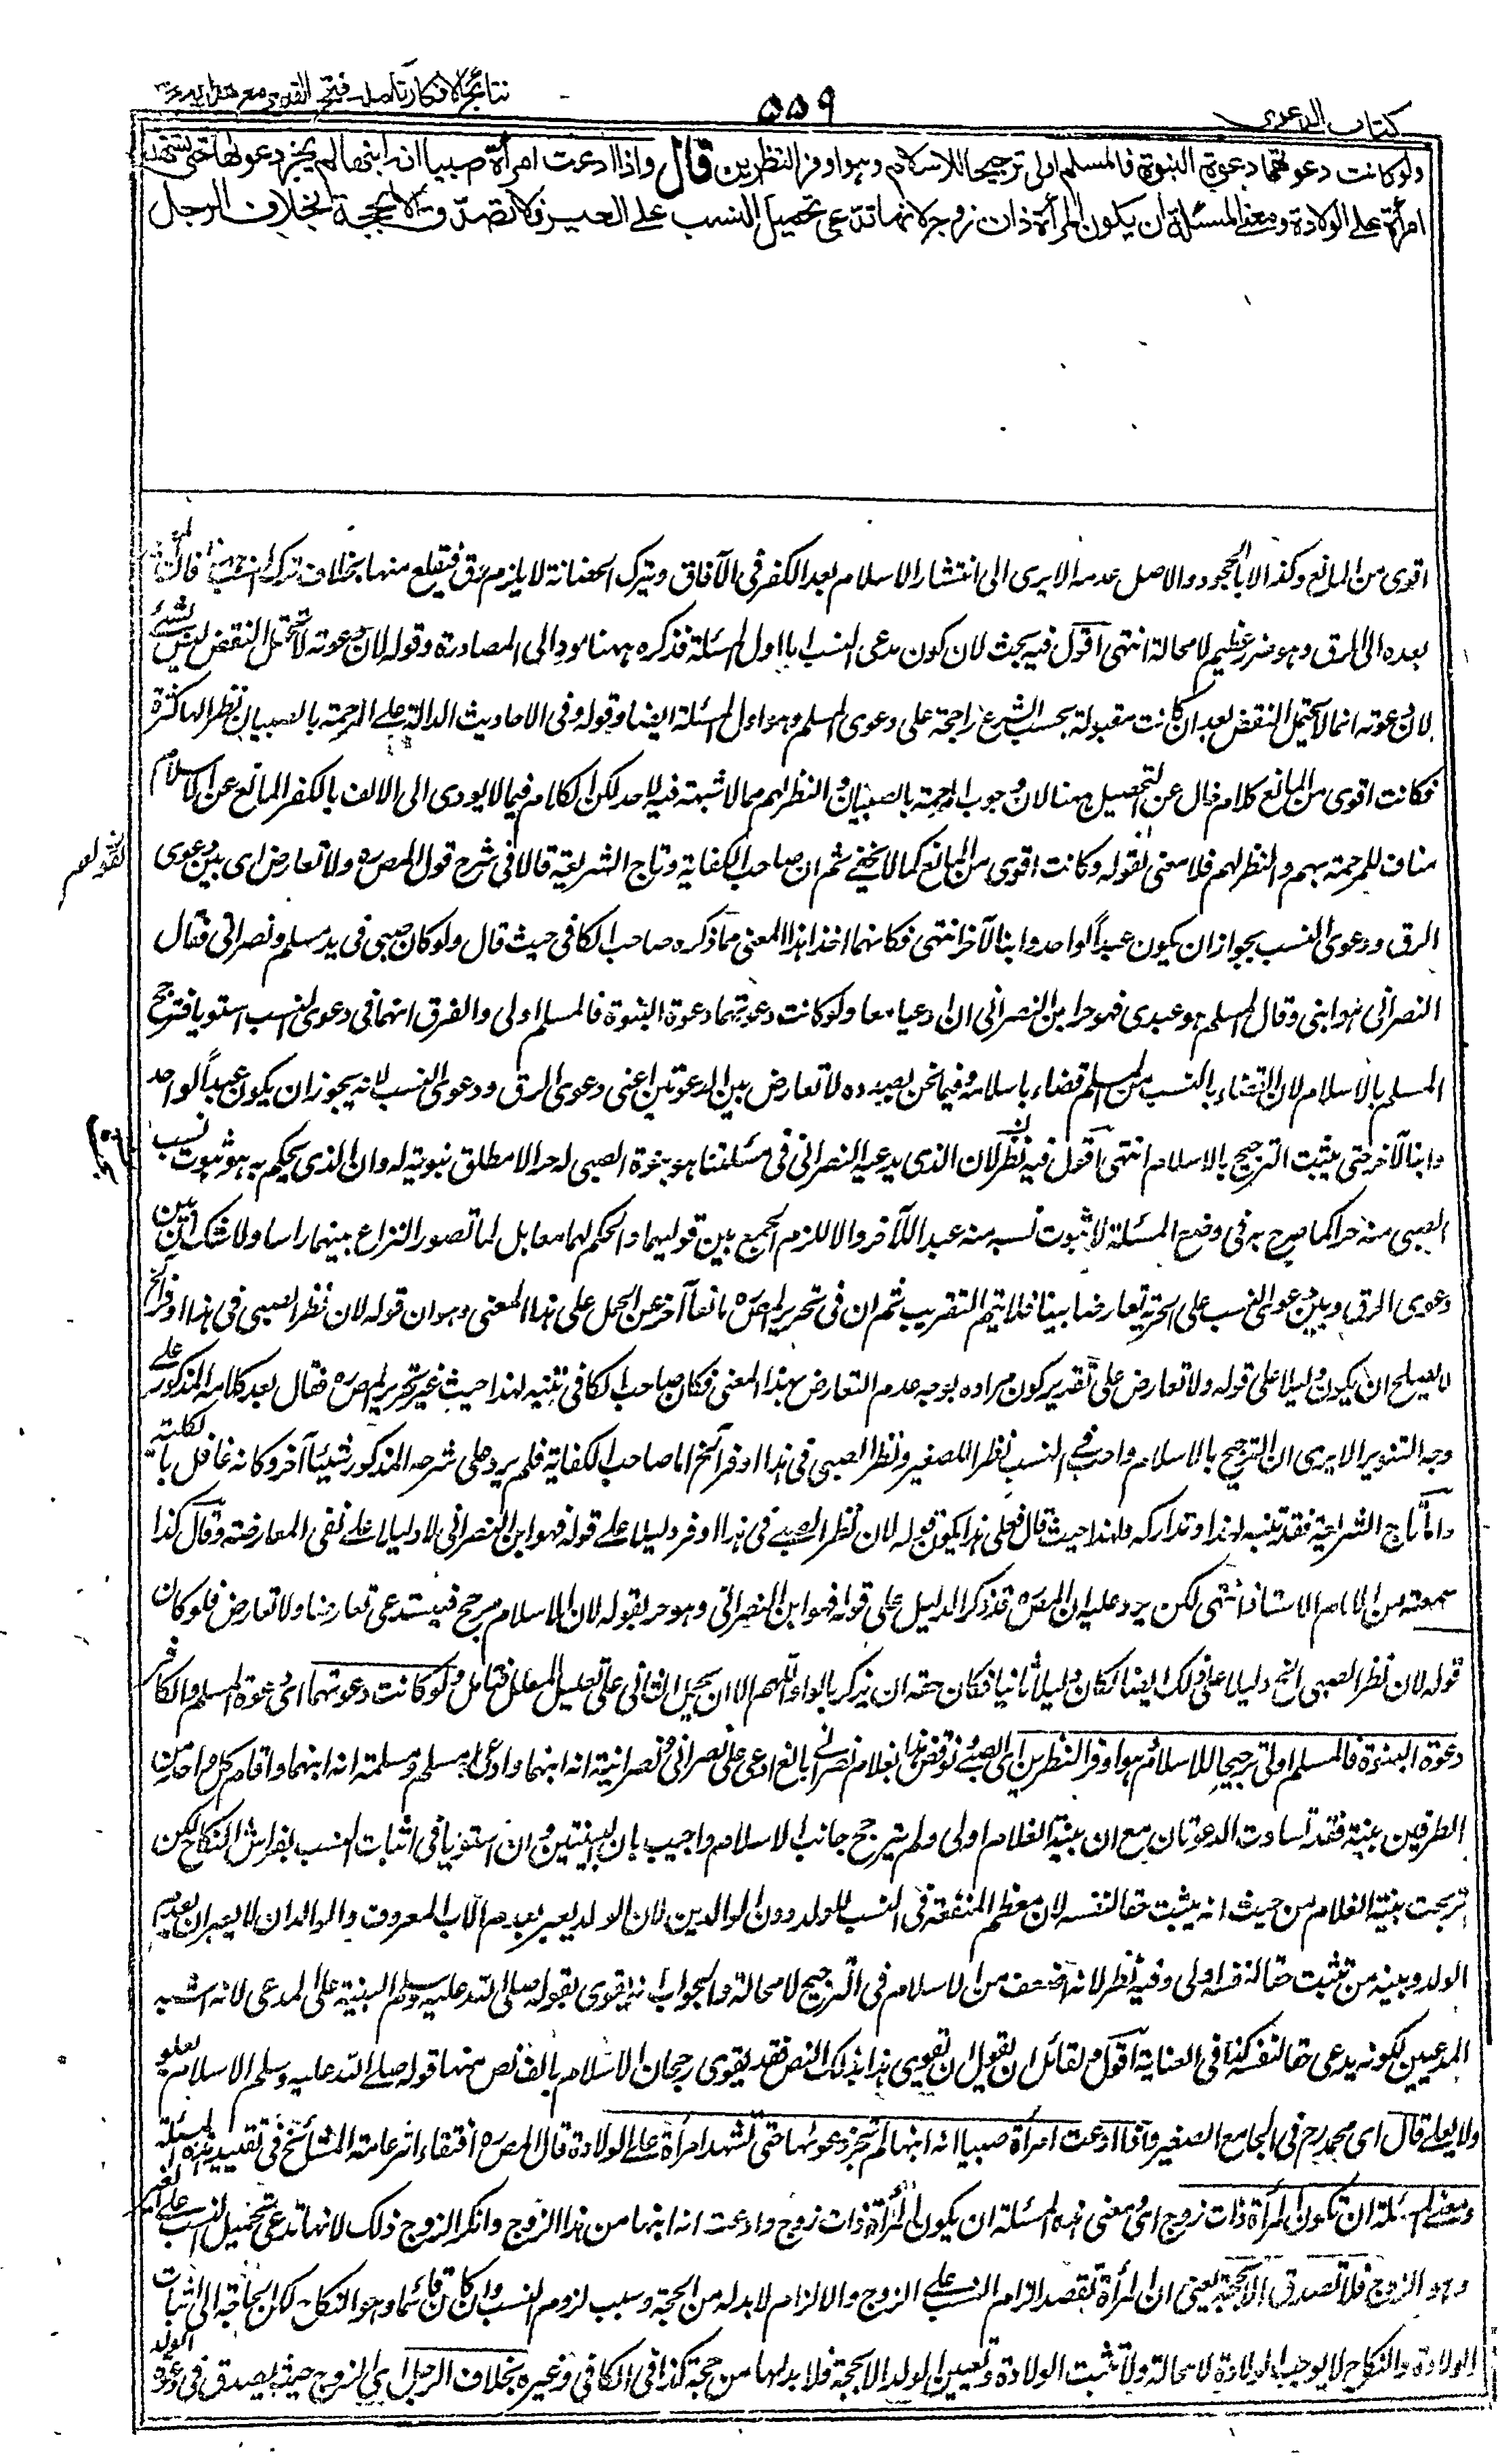 كتاب الدعوى
٥٥٩
نتائج الافكار تكملة فتح القدير مع هدايه
ولو كانت دعوتهما دعوة البنوة فالمسلم اولى ترجيحا للاسلام وهو اوفر النظرين قال واذا ادعت امرأة صبيا انه ابنها لم يجز دعوتها حتى تشهد
امرأة على الولادة ومعنى المسئلة ان يكون المرأة ذات زوج لانها تدعى تحميل النسب على الغير فلا تصدق الا بحجة بخلاف الرجل
اقوى من المانع وكفر الاباء جحود والاصل عدمه الا يرى الى انتشار الاسلام بعد الكفر فى الآفاق وبترك الحضانة لا يلزم رق فيقلع منها بخلاف ترك النسب فان
بعده الى الرق وهو ضرر عظيم لا محالة انتهى اقول فيه بحث لان كون مدعى النسب ابا اول المسئلة فذكره ههنا مود الى المصادرة وقوله لان دعوته لا تحتمل النقض ليس بشئ
لان دعوته انما لا تحتمل النقض بعد ان كانت مقبولة بحسب الشرع راجحة على دعوى المسلم وهو اول المسئلة ايضا وقوله وفى الاحاديث الدالة على المرحمة بالصبيان نظرا لها كثرة
فكانت اقوى من المانع كلام خال عن التحصيل ههنا لان وجوب المرحمة بالصبيان والنظر لهم مما لا شبهة فيه لاحد لكن الكلام فيما لا يودى الى الالف بالكفر المانع عن الاسلام
مناف للمرحمة بهم والنظر لهم فلا معنى لقوله وكانت اقوى من المانع كما لا يخفى ثم ان صاحب الكفاية وتاج الشريعة قالا فى شرح قول المصره ولا تعارض اى بين دعوى
الرق ودعوى النسب بجواز ان يكون عبدا لواحد وابنا لآخر انتهى فكانهما اخذا هذا المعنى مما ذكره صاحب الكافى حيث قال ولو كان صبى فى يد مسلم ونصرانى فقال
النصرانى هو ابنى وقال المسلم هو عبدى فهو حر ابن النصرانى ان ادعيا معا ولو كانت دعوتهما دعوة البنوة فالمسلم اولى والفرق انهما فى دعوى النسب استويا فترجح
المسلم بالاسلام لان القضاء بالنسب من المسلم قضاء باسلامه وفيما نحن بصدده لا تعارض بين الدعوتين اعنى دعوى الرق ودعوى النسب لانه يجوز ان يكون عبدا لواحد
وابنا لآخر حتى يثبت الترجيح بالاسلام انتهى اقول فيه نظر لان الذى يدعيه النصرانى فى مسئلتنا هو بنوة الصبى له حرا لا مطلق بنوته له وان الذى يحكم به هو ثبوت نسب
الصبى منه حرا كما صرح به فى وضع المسئلة لا ثبوت نسبه منه عبدا للآخر والا للزم الجمع بين قوليهما والحكم لهما معا بل لما تصور النزاع بينهما راسا ولا شك ان بين
دعوى الرق وبين دعوى النسب على الحرية تعارضا بينا فلا يتم التقريب ثم ان فى تحرير المصره مانعا آخر عن الحمل على هذا المعنى وهو ان قوله لان نظر الصبى فى هذا اوفر الخ
لا يصلح ان يكون دليلا على قوله ولا تعارض على تقدير كون مراده بوجه عدم التعارض بهذا المعنى فكان صاحب الكافى تنبه لهذا حيث غير تحرير المصره فقال بعد كلامه المذكور على
وجه التنوير الا يرى ان الترجيح بالاسلام واجب فى النسب نظرا للصغير ونظر الصبى فى هذا اوفر الخ اما صاحب الكفاية فلم يرد على شرحه المذكور شيئا آخر وكانه غافل بالكلية
واما تاج الشريعة فقد تنبه لهذا وتداركه ولهذا حيث قال فعلى هذا يكون قوله لان نظر الصبى فى هذا اوفر دليلا على قوله فهو ابن النصرانى لا دليلا على نفى المعارضة وقال كذا
سمعته من الامام الاستاذ انتهى لكن يرد عليه ان المصره قد ذكر الدليل على قوله فهو ابن النصرانى وهو حر بقوله لان الاسلام مرجح فيستدعى تعارضا ولا تعارض فلو كان
قوله لان نظر الصبى الخ دليلا على ذلك ايضا لكان دليلا ثانيا فكان حقه ان يذكر بالواو اللهم الا ان يحمل الثانى على تعليل المعلل فتأمل ولو كانت دعوتهما اى دعوة المسلم والكافر
دعوة البنوة فالمسلم اولى ترجيحا للاسلام وهو اوفر النظرين اى للصبى نوقض هذا بغلام نصرانى بالغ ادعى على نصرانى ونصرانية انه ابنهما وادعى مسلم ومسلمة انه ابنهما واقام كل واحد من
الطرفين بينة فقد تساوت الدعوتان مع ان بينة الغلام اولى ولم يترجح جانب الاسلام واجيب بان البينتين وان استويا فى اثبات النسب بفراش النكاح لكن
ترجحت بينة الغلام من حيث انه يثبت حقا لنفسه لان معظم المنفعة فى النسب للولد دون الوالدين لان الولد يعير بعدم الاب المعروف والوالدان لا يعيران بعدم
الولد وبينة من يثبت حقا لنفسه اولى وفيه نظر لانه اضعف من الاسلام فى الترجيح لا محالة والجواب انه يقوى بقوله صلى الله عليه وسلم البينة على المدعى لانه اشبه
المدعيين لكونه يدعى حقا لنفسه كذا فى العناية اقول لقائل ان يقول ان تقوى هذا بذلك النص فقد يقوى رجحان الاسلام بالف نص منها قوله صلى الله عليه وسلم الاسلام يعلو
ولا يعلى قال اى محمد رح فى الجامع الصغير واذا ادعت امرأة صبيا انه ابنها لم تجز دعوتها حتى تشهد امرأة على الولادة قال المصره اقتفاء اثر عامة المشائخ فى تقييد هذه المسئلة
ومعنى المسئلة ان تكون المرأة ذات زوج اى معنى هذه المسئلة ان يكون المرأة ذات زوج وادعت انه ابنها من هذا الزوج وانكر الزوج ذلك لانها تدعى تحميل النسب على الغير
وهو الزوج فلا تصدق الا بحجة يعنى ان المرأة تقصد الزام النسب على الزوج والالزام لا بد له من الحجة وسبب لزوم النسب وان كان قائما وهو النكاح لكن الحاجة الى اثبات
الولادة والنكاح لا يوجب الولادة لا محالة ولا تثبت الولادة وتعيين الولد الا بحجة فلا بد لها من حجة كذا فى الكافى وغيره بخلاف الرجل اى الزوج حيث يصدق فى دعوة الولد